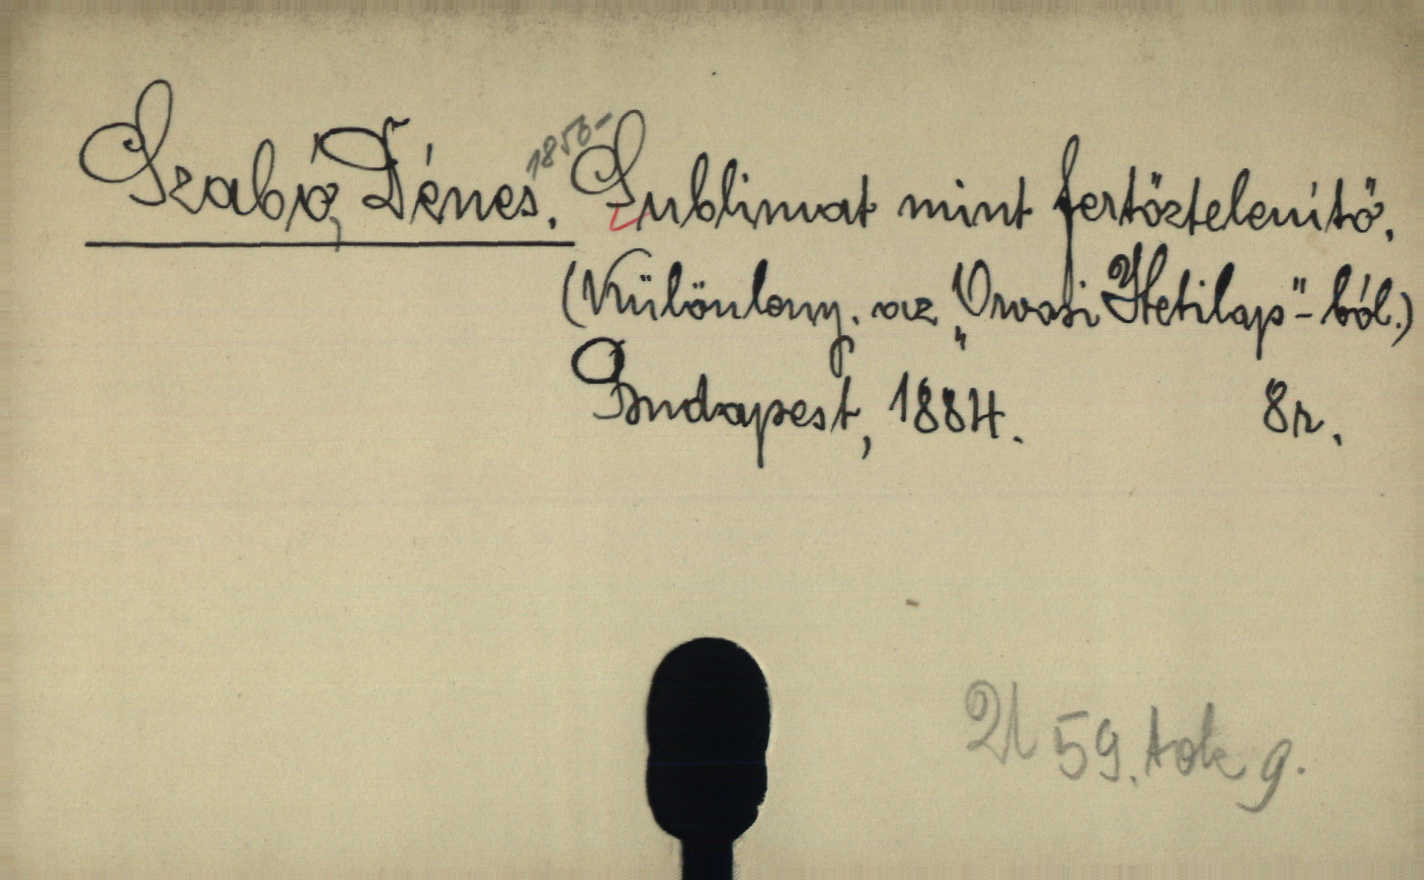 Szabó, Dénes. 1856- Sublimat mint fertőztelenítő.
(Különleny. az „Orvosi Hetilap"-ból.)
Budapest, 1884. 8r.
59. tok g.